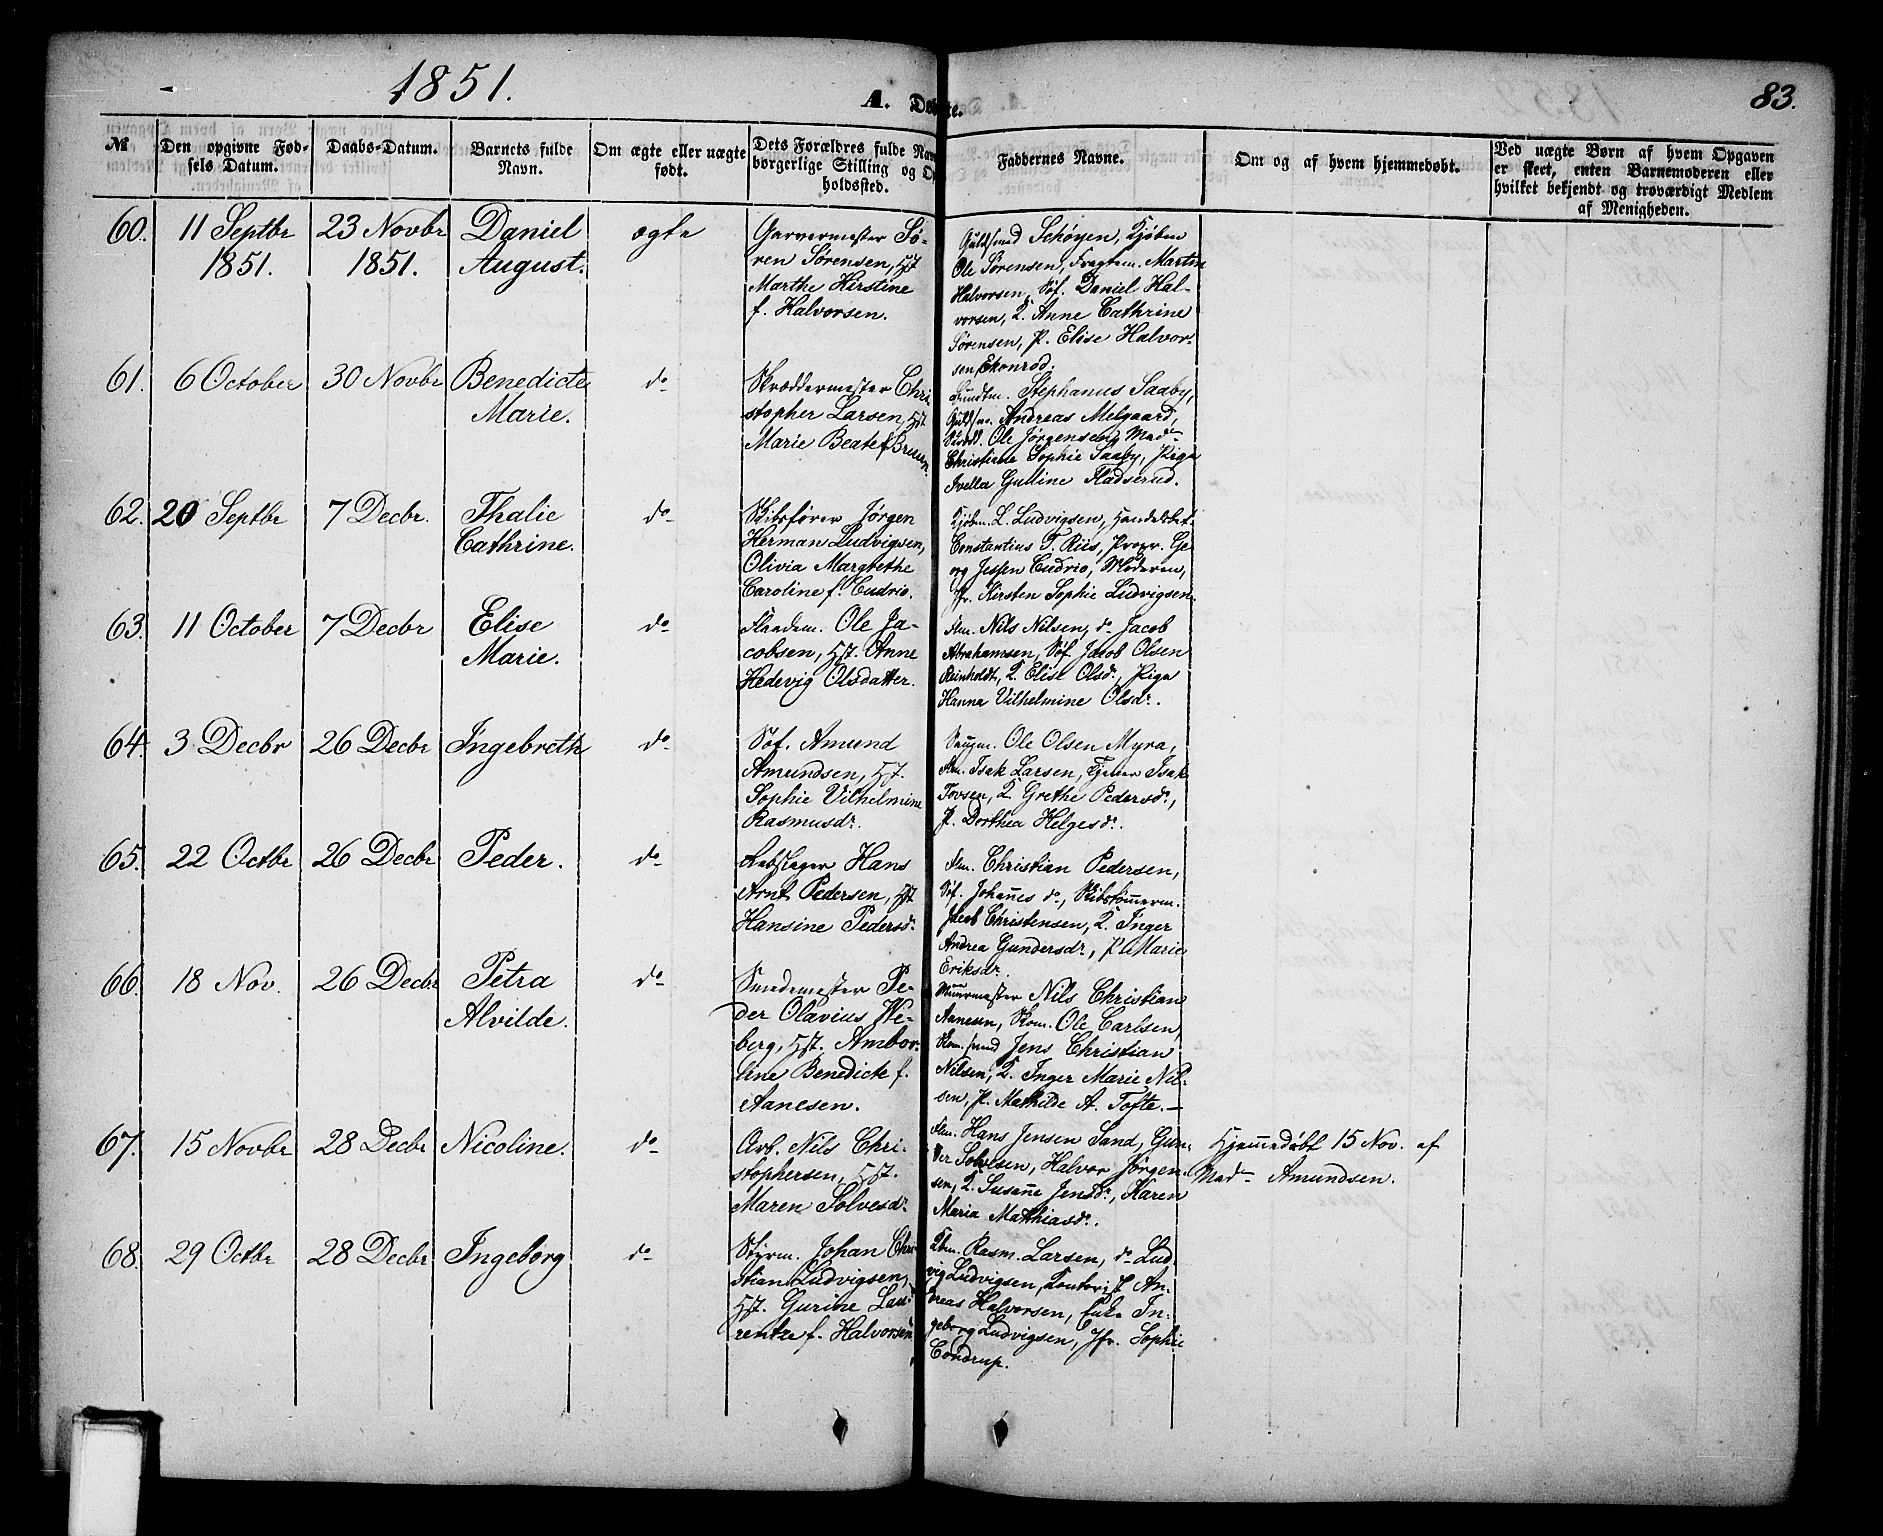 1851.
A. Døbte.
83.
№
Den opgivne Fød-
sels Datum.
Daabs-Datum.
Barnets fulde
Navn.
Om ægte eller uægte
født.
Dets Forældres fulde Nav
borgerlige Stilling og O
holdssted.
Faddernes Navne.
Om og af hvem hjemmedøbt.
Ved uægte Børn af hvem Opgaven
er skeet, enten Barnemoderen eller
hvilket bekjendt og troværdigt Medlem
af Menigheden.
60. 11 Septbr 23 Novbr Daniel ægte
1851. 1851. August.
Garvermester Sø-
ren Sørensen, Hst
Marthe Kirstine
f. Halvorsen.
Guldsmed Schøyen, Kjøbm
Ole Sørensen, Fragtm. Martin
Halvorsen, Søf. Daniel Hal-
vorsen, K. Anne Cathrine
Sørensen, P. Elise Halvor-
sen
61. 6 October 30 Novbr Benedicte do
Marie.
Skræddermester Chri
stopher Larsen, Hst
Marie Beate f. Bruun.
Stephanus Saaby,
Guldsm. Andreas Melgaard,
Ole Jørgensen, Mad
Christiane Sophie Saaby, Piga
Guline Fladserud.
62. 20 Septbr 7 Decbr. Thalie do
Cathrine.
Skibsfører Jørgen
Herman Ludvigsen,
Olivia Margrethe
Caroline f. Cudrio.
Kjøbm. L. Ludvigsen, Handelsbet.
Constantius T. Riis, Propr. Ge
org Jessen Cudrio, Moderen,
Jfr. Kirsten Sophie Ludvigsen.
63. 11 October 7 Decbr Elise do
Marie.
Ole Ja-
cobsen, Hst. Anne
Hedevig Olsdatter.
Nils Nilsen, do Jacob
Abrahamsen, Søf. Jacob Olsen
Reinholdt, K. Elise Olsdr., Piga
Hanna Vilhelmine Olsdr.
64. 3 Decbr 26 Decbr Ingebreth do
Søf. Amund
Amundsen, Hst.
Sophie Vilhelmine
Rasmusdr.
Ole Olsen Myra,
Isak Larsen, Tjener Isak
Tovsen, K. Grethe Pedersdr.,
P. Dorthea Helgesdr.
65. 22 Octbr 26 Decbr Peder. do
Rebslager Hans
Arnt Pedersen, Hst
Hansine Pedersdr
Christian Pedersen,
Søf. Johannes do, Skibstømmerm.
Jacob Christensen, K. Inger
Andrea Gundersdr., P. Marie
Eriksdr.
66. 18 Nov. 26 Decbr Petra do
Alvilde.
Smedemester Pe-
der Olavius We-
berg, Hst. Ambor-
line Benedicte f.
Aanesen.
Muurmester Nils Christian
Aanesen, Skom. Ole Carlsen,
Jens Christian
Nilsen, K. Inger Marie Nil-
sen, P. Mathilde A. Tofte.—
67. 15 Novbr 28 Decbr Nicoline. do
Arb. Nils Chri-
stophersen, Hst.
Maren Solvesdr
Hans Jensen Sand, Gun-
der Solvesen, Halvor Jørgen-
sen, K. Susanne Jensdr., Karen
Maria Mathiasdr.
Hjemmedøbt 15 Nov. af
Mad. Amundsen.
68. 29 Octbr 28 Decbr Ingeborg do
Styrm. Johan Chri-
stian Ludvigsen,
Hst. Gurine Lau-
rentze f. Halvorsen
Rasm. Larsen, do Lud
vig Ludvigsen, Kontorist An-
dreas Halvorsen, Enke In-
geborg Ludvigsen, Jfr. Sophie
Condrup.